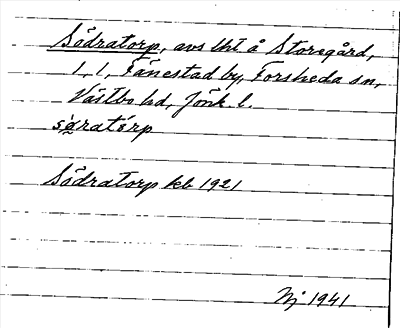 Södratorp, avs lht å Storegård,
1, 1, Fänestad by, Forsheda sn,
Västbo hd, Jönk. l.
Södratorp kb 1921
Nj 1941